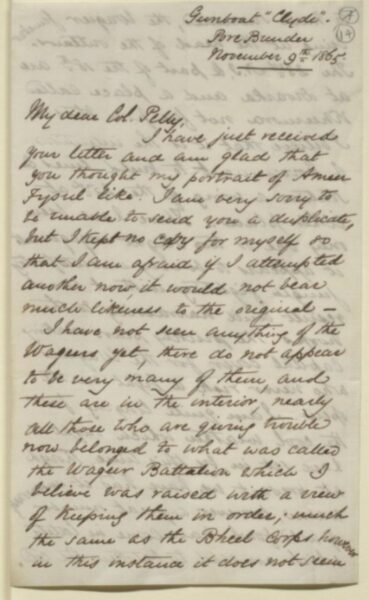 Gunboat "Clyde".
Pore Bunder
November 9th 1865
My dear Col. Pelly,
I have just received
your letter and am glad that
you thought my portrait of Ameer
Fysul like. I am very sorry to
be unable to send you a duplicate,
but I kept no copy for myself so
that I am afraid if I attempted
another now, it would not bear
much likeness to the original –
I have not seen anything of the
Wageers yet there do not appear
to be very many of them and
these are in the interior, nearly
all those who are giving trouble
now belonged to what was called
the Wageer Battalion which I
believe was raised with a view
of keeping them in order; much
the same as the Bheel Corps however
in this instance it does not seem